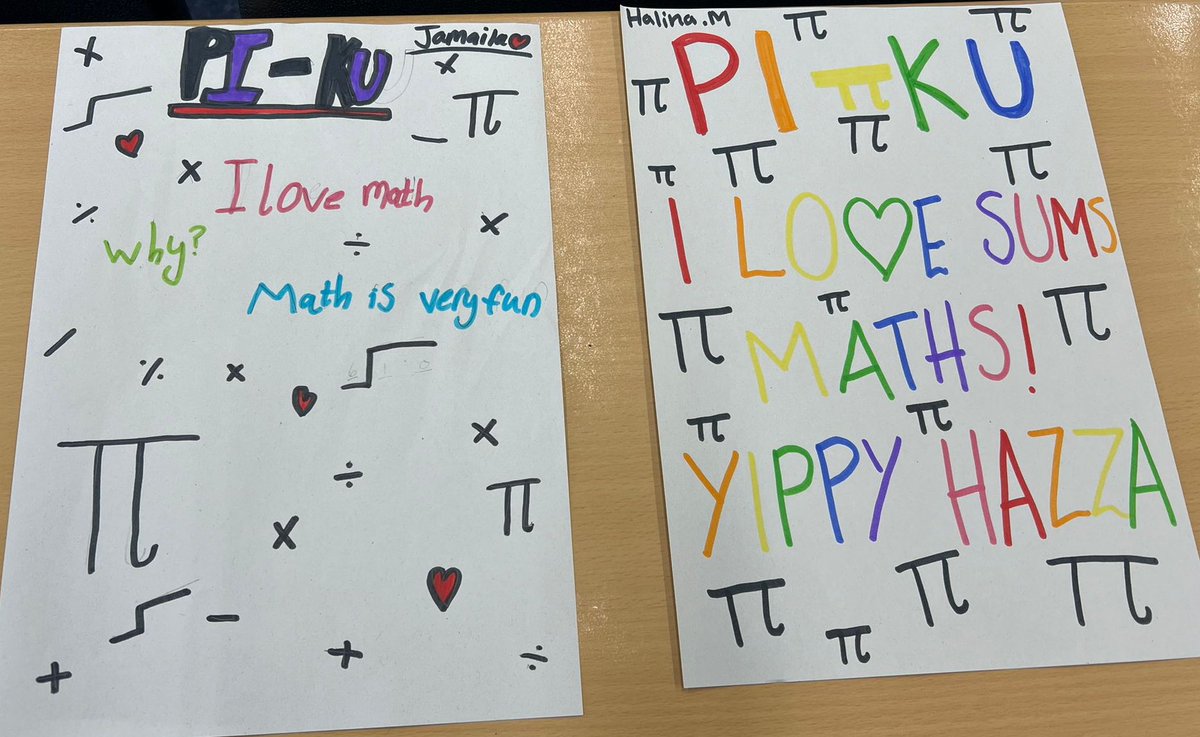 PI-KU
Jamaila
I love math
why?
Math is very fun
Halina.M
PI-KU
I LO♡E SUMS
MATHS!
YIPPY HAZZA